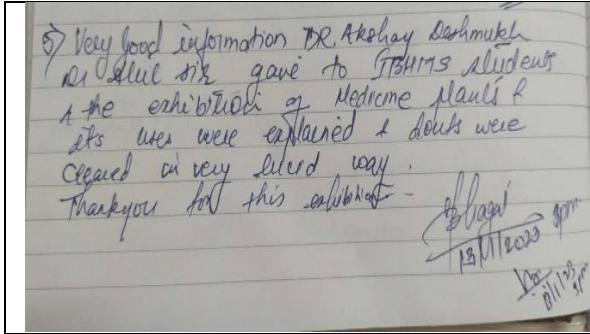 5) Very good information DR. Akshay Deshmukh
sir gave to IBHMS students
& the exhibition of Medicine plants &
its uses were explained & douts were
cleared in very lucid way.
Thankyou for this exhibition -
13/1/2023 3pm
13/1/23
3pm